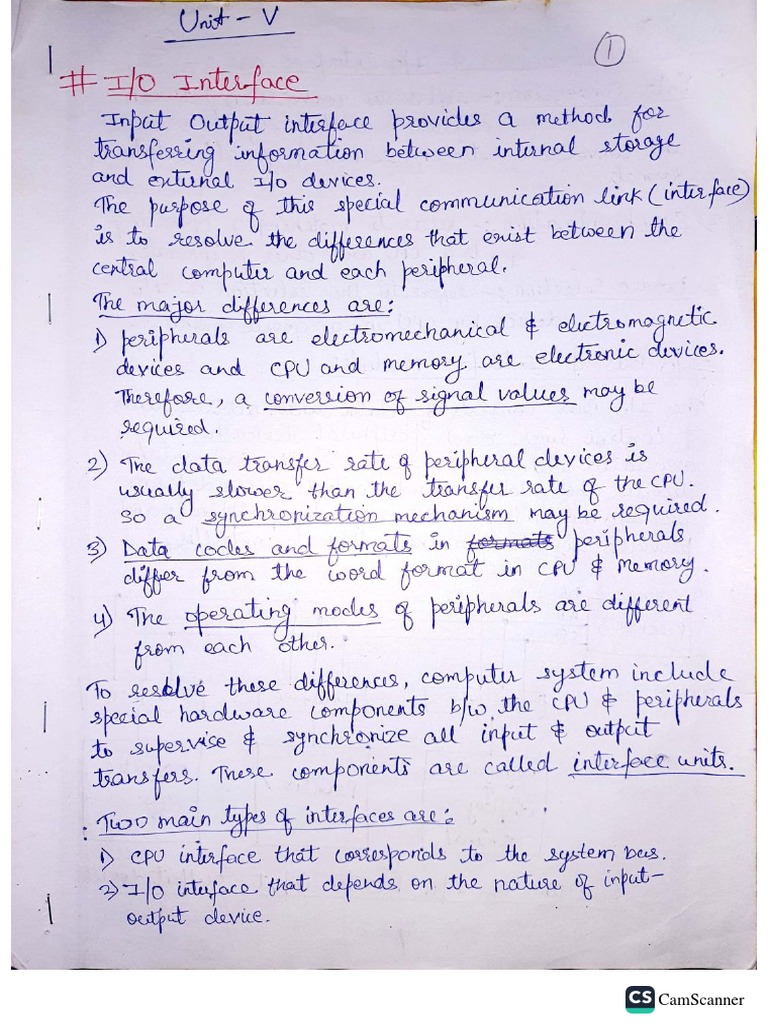 Unit - V
1
# I/O Interface
Input Output interface provides a method for
transferring information between internal storage
and external I/o devices.
The purpose of this special communication link (interface)
is to resolve the differences that exist between the
central computer and each peripheral.
The major differences are:
1) peripherals are electromechanical & electromagnetic
devices and CPU and memory are electronic devices.
Therefore, a conversion of signal values may be
required.
2) The data transfer rate of peripheral devices is
usually slower than the transfer rate of the CPU.
So a synchronization mechanism may be required.
3) Data codes and formats in formats peripherals
differ from the word format in CPU & memory.
4) The operating modes of peripherals are different
from each other.
To resolve these differences, computer system include
special hardware components b/w the CPU & peripherals
to supervise & synchronize all input & output
transfers. These components are called interface units.
Two main types of interfaces are:
1) CPU interface that corresponds to the system bus.
2) I/O interface that depends on the nature of input-
output device.
CS CamScanner